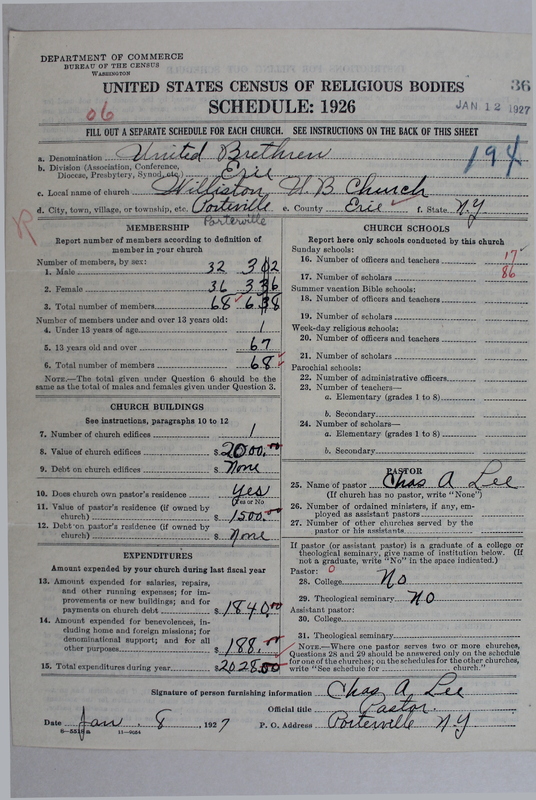 DEPARTMENT OF COMMERCE
BUREAU OF THE CENSUS
WASHINGTON
UNITED STATES CENSUS OF RELIGIOUS BODIES
36
SCHEDULE: 1926
JAN 12 1927
06
FILL OUT A SEPARATE SCHEDULE FOR EACH CHURCH. SEE INSTRUCTIONS ON THE BACK OF THIS SHEET
a. Denomination United Brethren
194
b. Division (Association, Conference, Diocese, Presbytery, Synod, etc.) Erie
c. Local name of church Williston U B Church
d. City, town, village, or township, etc. Porteville e. County Erie f. State N.Y.
Porterville
R
MEMBERSHIP
Report number of members according to definition of member in your church
Number of members, by sex:
1. Male 32 302
2. Female 36 336
3. Total number of members 68 638
Number of members under and over 13 years old:
4. Under 13 years of age 1
5. 13 years old and over 67
6. Total number of members 68
NOTE.—The total given under Question 6 should be the same as the total of males and females given under Question 3.
CHURCH BUILDINGS
See instructions, paragraphs 10 to 12
7. Number of church edifices 1
8. Value of church edifices $2000.00
9. Debt on church edifices $ None
10. Does church own pastor's residence Yes
Yes or No
11. Value of pastor's residence (if owned by church) $ 1500.00
12. Debt on pastor's residence (if owned by church) $ None
EXPENDITURES
Amount expended by your church during last fiscal year
13. Amount expended for salaries, repairs, and other running expenses; for improvements or new buildings; and for payments on church debt $ 1840.00
14. Amount expended for benevolences, including home and foreign missions; for denominational support; and for all other purposes $ 188.00
15. Total expenditures during year $2028.00
CHURCH SCHOOLS
Report here only schools conducted by this church
Sunday schools:
16. Number of officers and teachers 17
17. Number of scholars 86
Summer vacation Bible schools:
18. Number of officers and teachers
19. Number of scholars
Week-day religious schools:
20. Number of officers and teachers
21. Number of scholars
Parochial schools:
22. Number of administrative officers
23. Number of teachers—
a. Elementary (grades 1 to 8)
b. Secondary
24. Number of scholars—
a. Elementary (grades 1 to 8)
b. Secondary
PASTOR
25. Name of pastor Chas A Lee
(If church has no pastor, write "None")
26. Number of ordained ministers, if any, employed as assistant pastors
27. Number of other churches served by the pastor or his assistants
If pastor (or assistant pastor) is a graduate of a college or theological seminary, give name of institution below. (If not a graduate, write "No" in the space indicated.)
Pastor: 0
28. College No
29. Theological seminary No
Assistant pastor:
30. College
31. Theological seminary
NOTE.—Where one pastor serves two or more churches, Questions 28 and 29 should be answered only on the schedule for one of the churches; on the schedules for the other churches, write "See schedule for church."
Signature of person furnishing information Chas A Lee
Official title Pastor.
Date Jan. 8, 1927 P. O. Address Porterville N.Y
8—5518a 11—9034